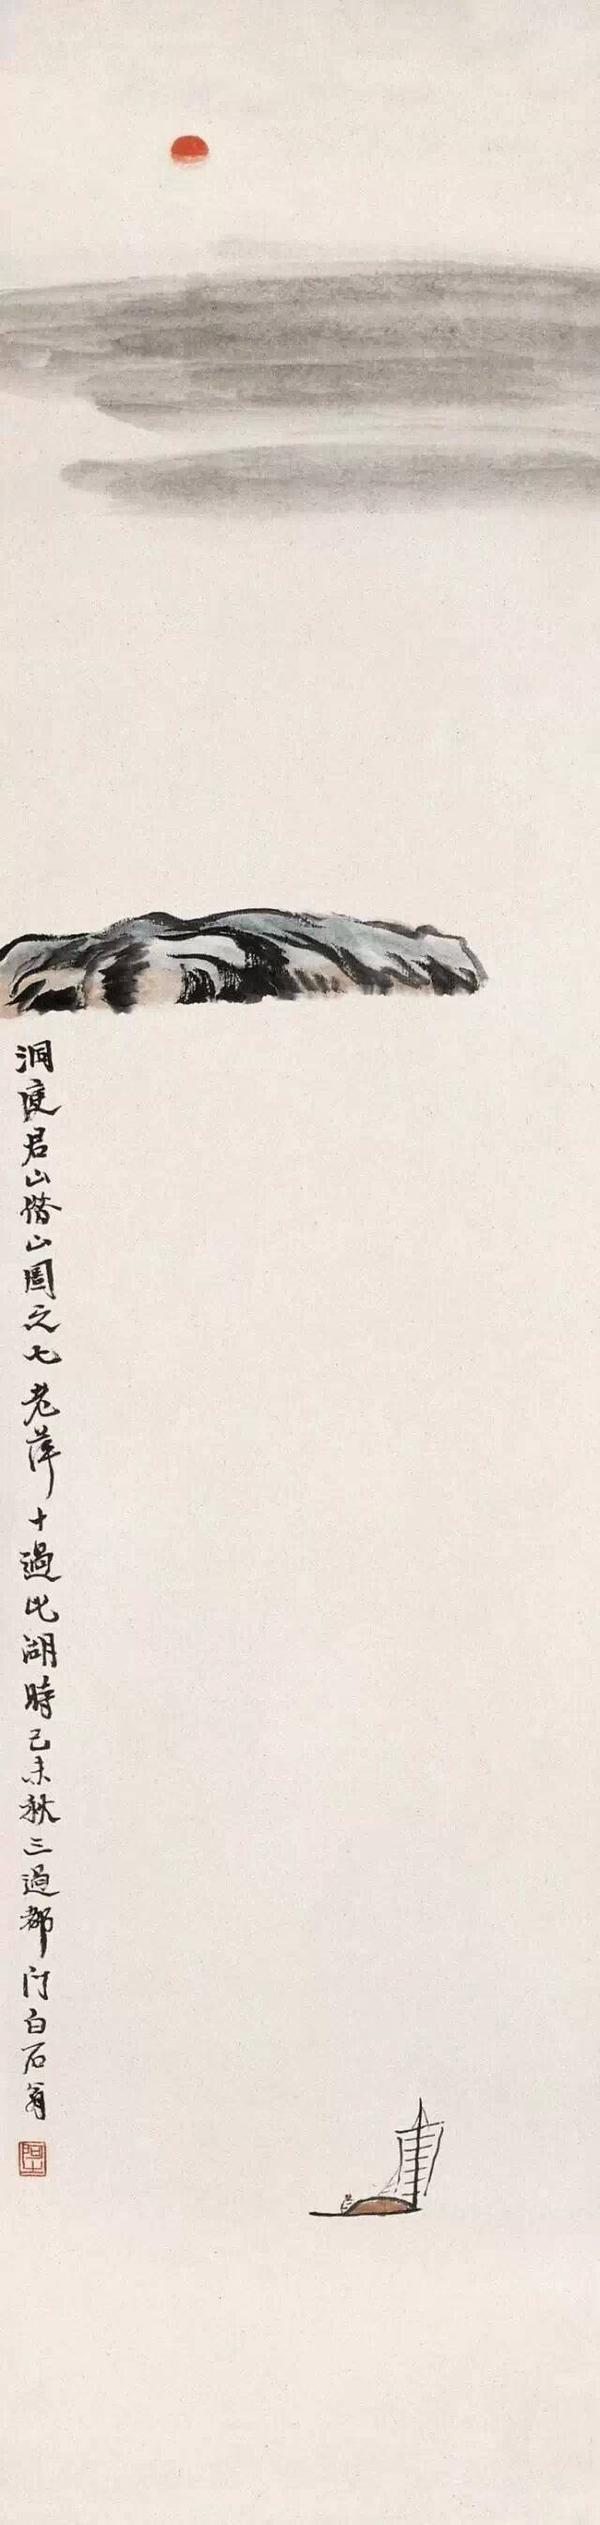 洞庭君山借山圖之七老萍十過此湖時己未秋三過都門白石翁